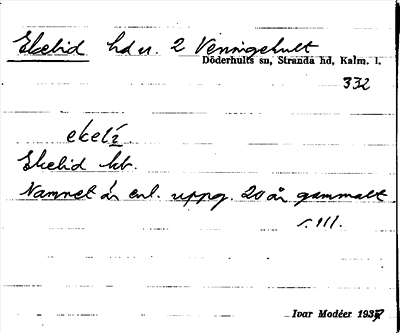 Ekelid hd u. 2 Vennigehult
Döderhults sn, Stranda hd, Kalm. l.
332
ekeli
Ekelid hb.
Namnet är enl. uppg. 20 år gammalt
s. 111.
Ivar Modéer 1937